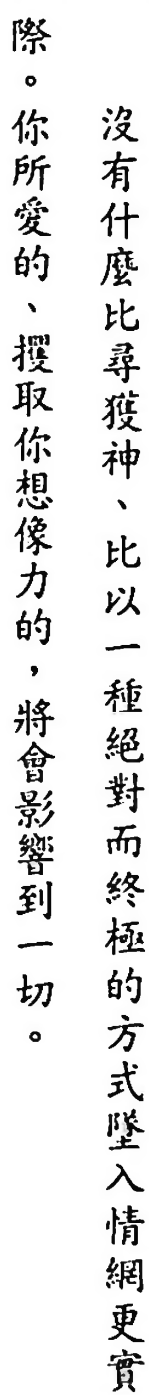 沒有什麼比尋獲神、比以一種絕對而終極的方式墜入情網更實
際。你所愛的、攫取你想像力的，將會影響到一切。